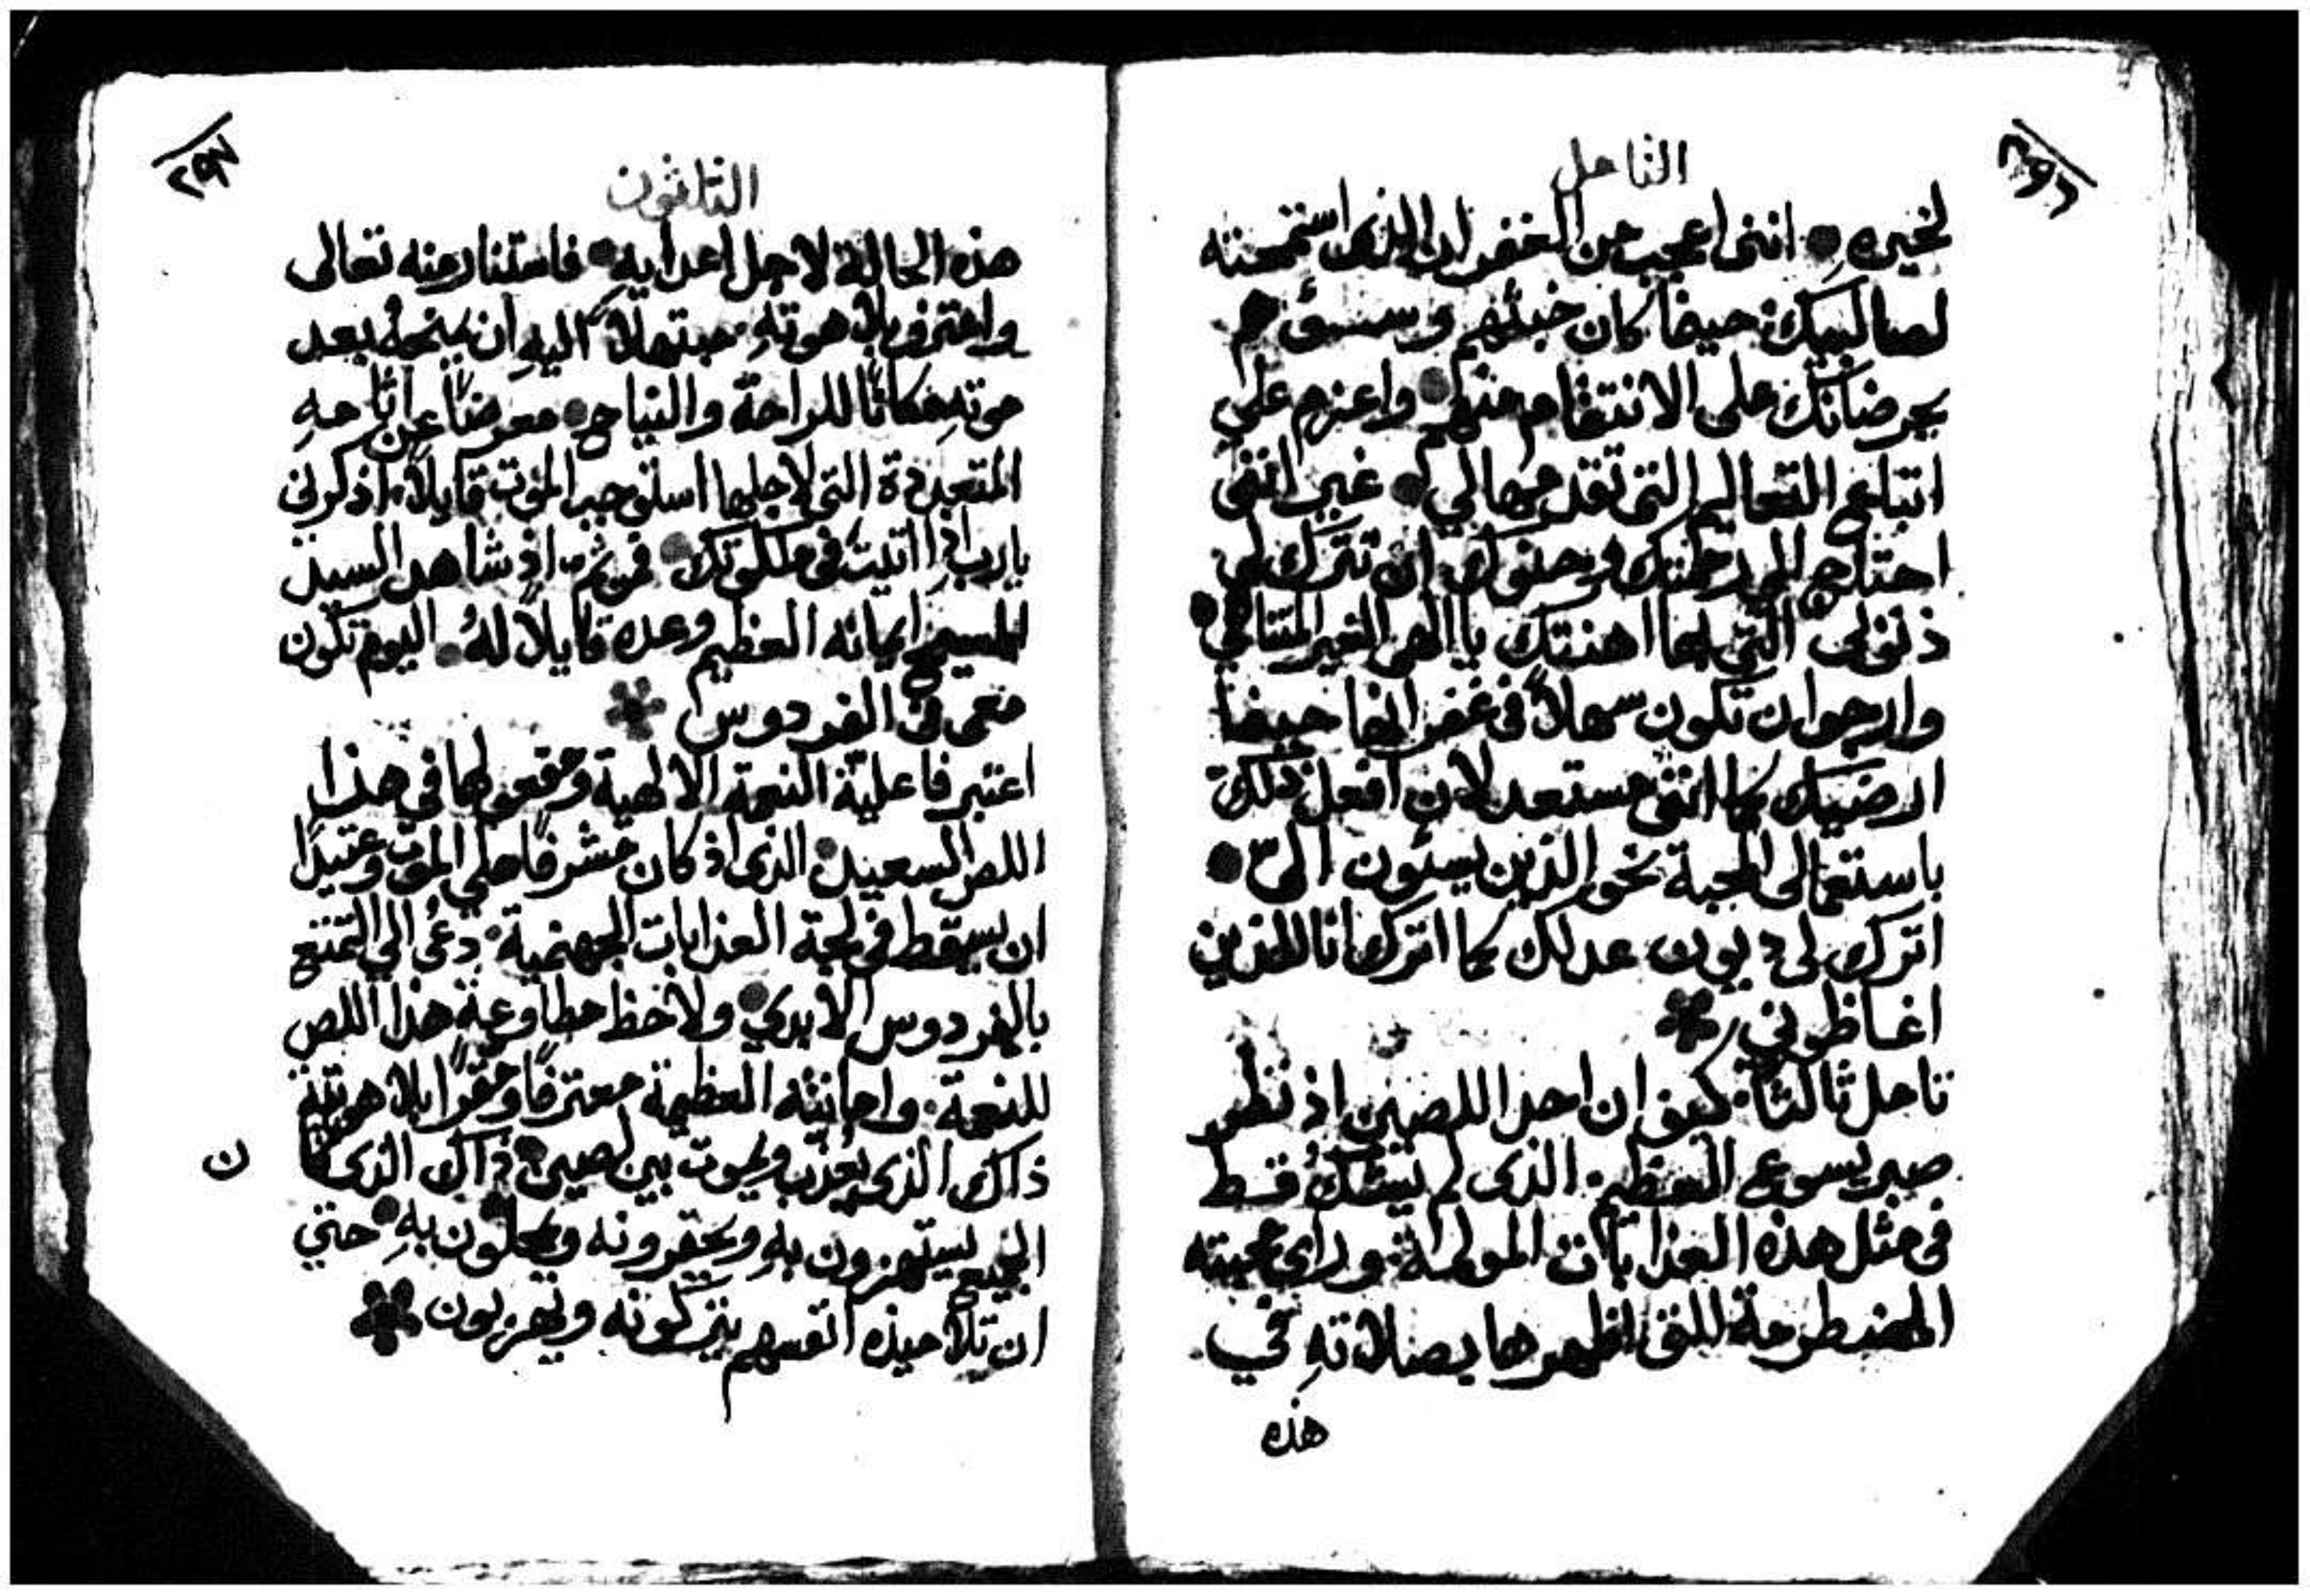 ٢٩٦
التامل
لخيره انني اعجب من الغفران الذي استمحته
لصالبيك حينما كان خبثهم وسسؤهم
يحرضانك على الانتقام منهم واعزم على
اتباع التعاليم التي تقدمها لي غير انني
احتاج الى رحمتك وحنوك ان تترك لي
ذنوبي التي بها اهنتك يا الهي الغير المتناهي
وارجو ان تكون سهلاً في غفرانها حينما
ارضيك كما انني مستعد لان افعل ذلك
باستعمالى المحبة نحو الذين يسيئون اليّ
اترك لي ديون عدلك كما اترك انا للذين
اغاظوني
تامل ثالثاً كيف ان احد اللصين اذ نظر
صبر يسوع العظيم الذي لم يتشك قط
في مثل هذه العذابات المولمة وراي محبته
المضطرمة التي اظهرها بصلاته في
هذه
٢٩٧
الثلثون
هذه الحالة لاجل اعدايه فاستنار منه تعالى
واعترف بلاهوته مبتهلاً اليه ان يمنحه بعد
موته مكاناً للراحة والنياح معرضاً عن اثامه
المتعددة التي لاجلها استوجب الموت قايلاً اذكرني
يارب اذا اتيت في ملكوتك فمن ثم اذ شاهد السيد
المسيح ايمانه العظيم وعده قايلاً له اليوم تكون
معي في الفردوس
اعتبر فاعلية النعمة الالهية ومفعولها في هذا
اللص السعيد الذي اذ كان مشرفاً على الموت وعتيداً
ان يسقط في لجة العذابات الجهنمية دعي الى التمتع
بالفردوس الابدي ولاحظ مطاوعة هذا اللص
للنعمة وامانته العظيمة معترفاً ومقراً بلاهوته
ذاك الذي يعذب ويموت بين لصين ذاك الذي كان
الجميع يستهزون به ويحقرونه به حتي
ان تلاميذه انفسهم يتركونه ويهربون